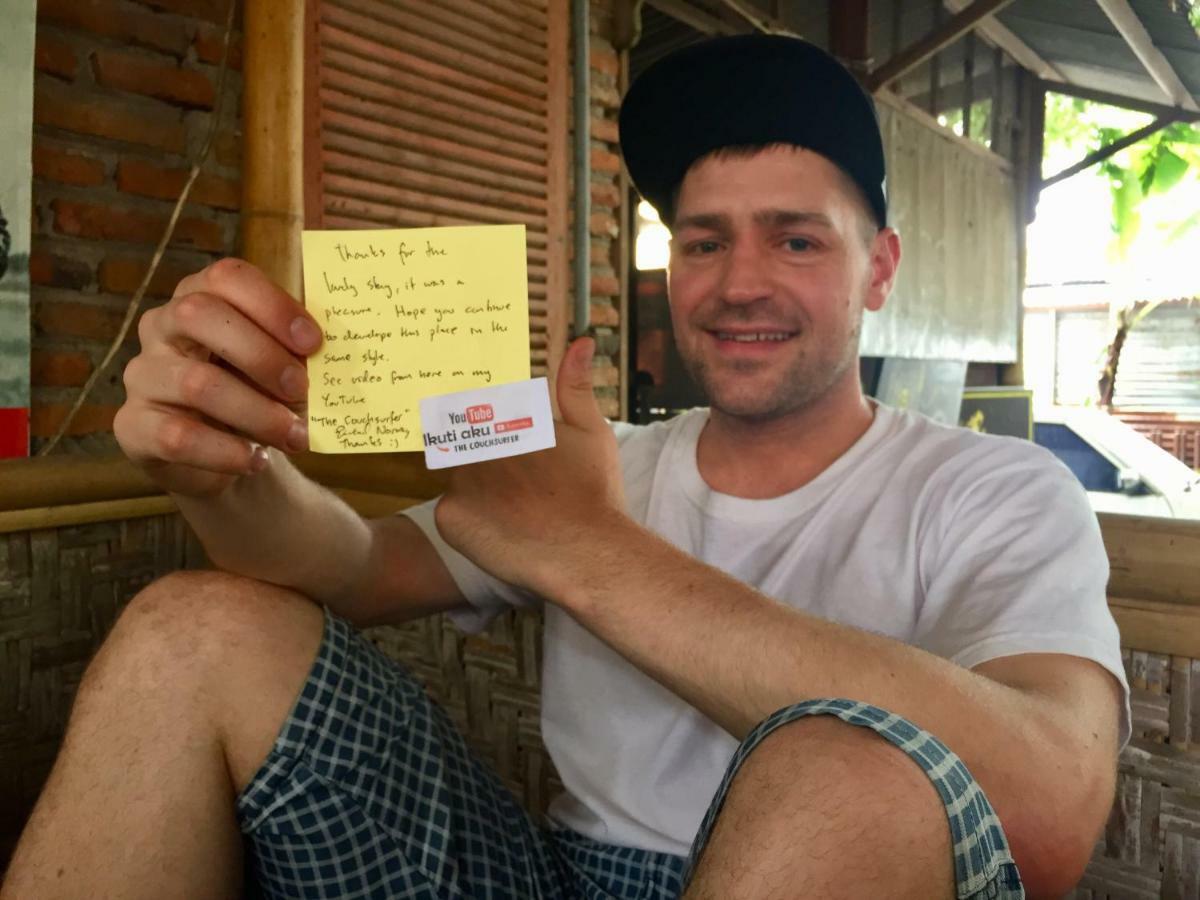 Thanks for the
lovely stay, it was a
pleasure. Hope you continue
to develope this place in the
same style.
See video from here on my
YouTube
"The Couchsurfer"
Norway
Thanks :)
YouTube
Ikuti aku
THE COUCHSURFER